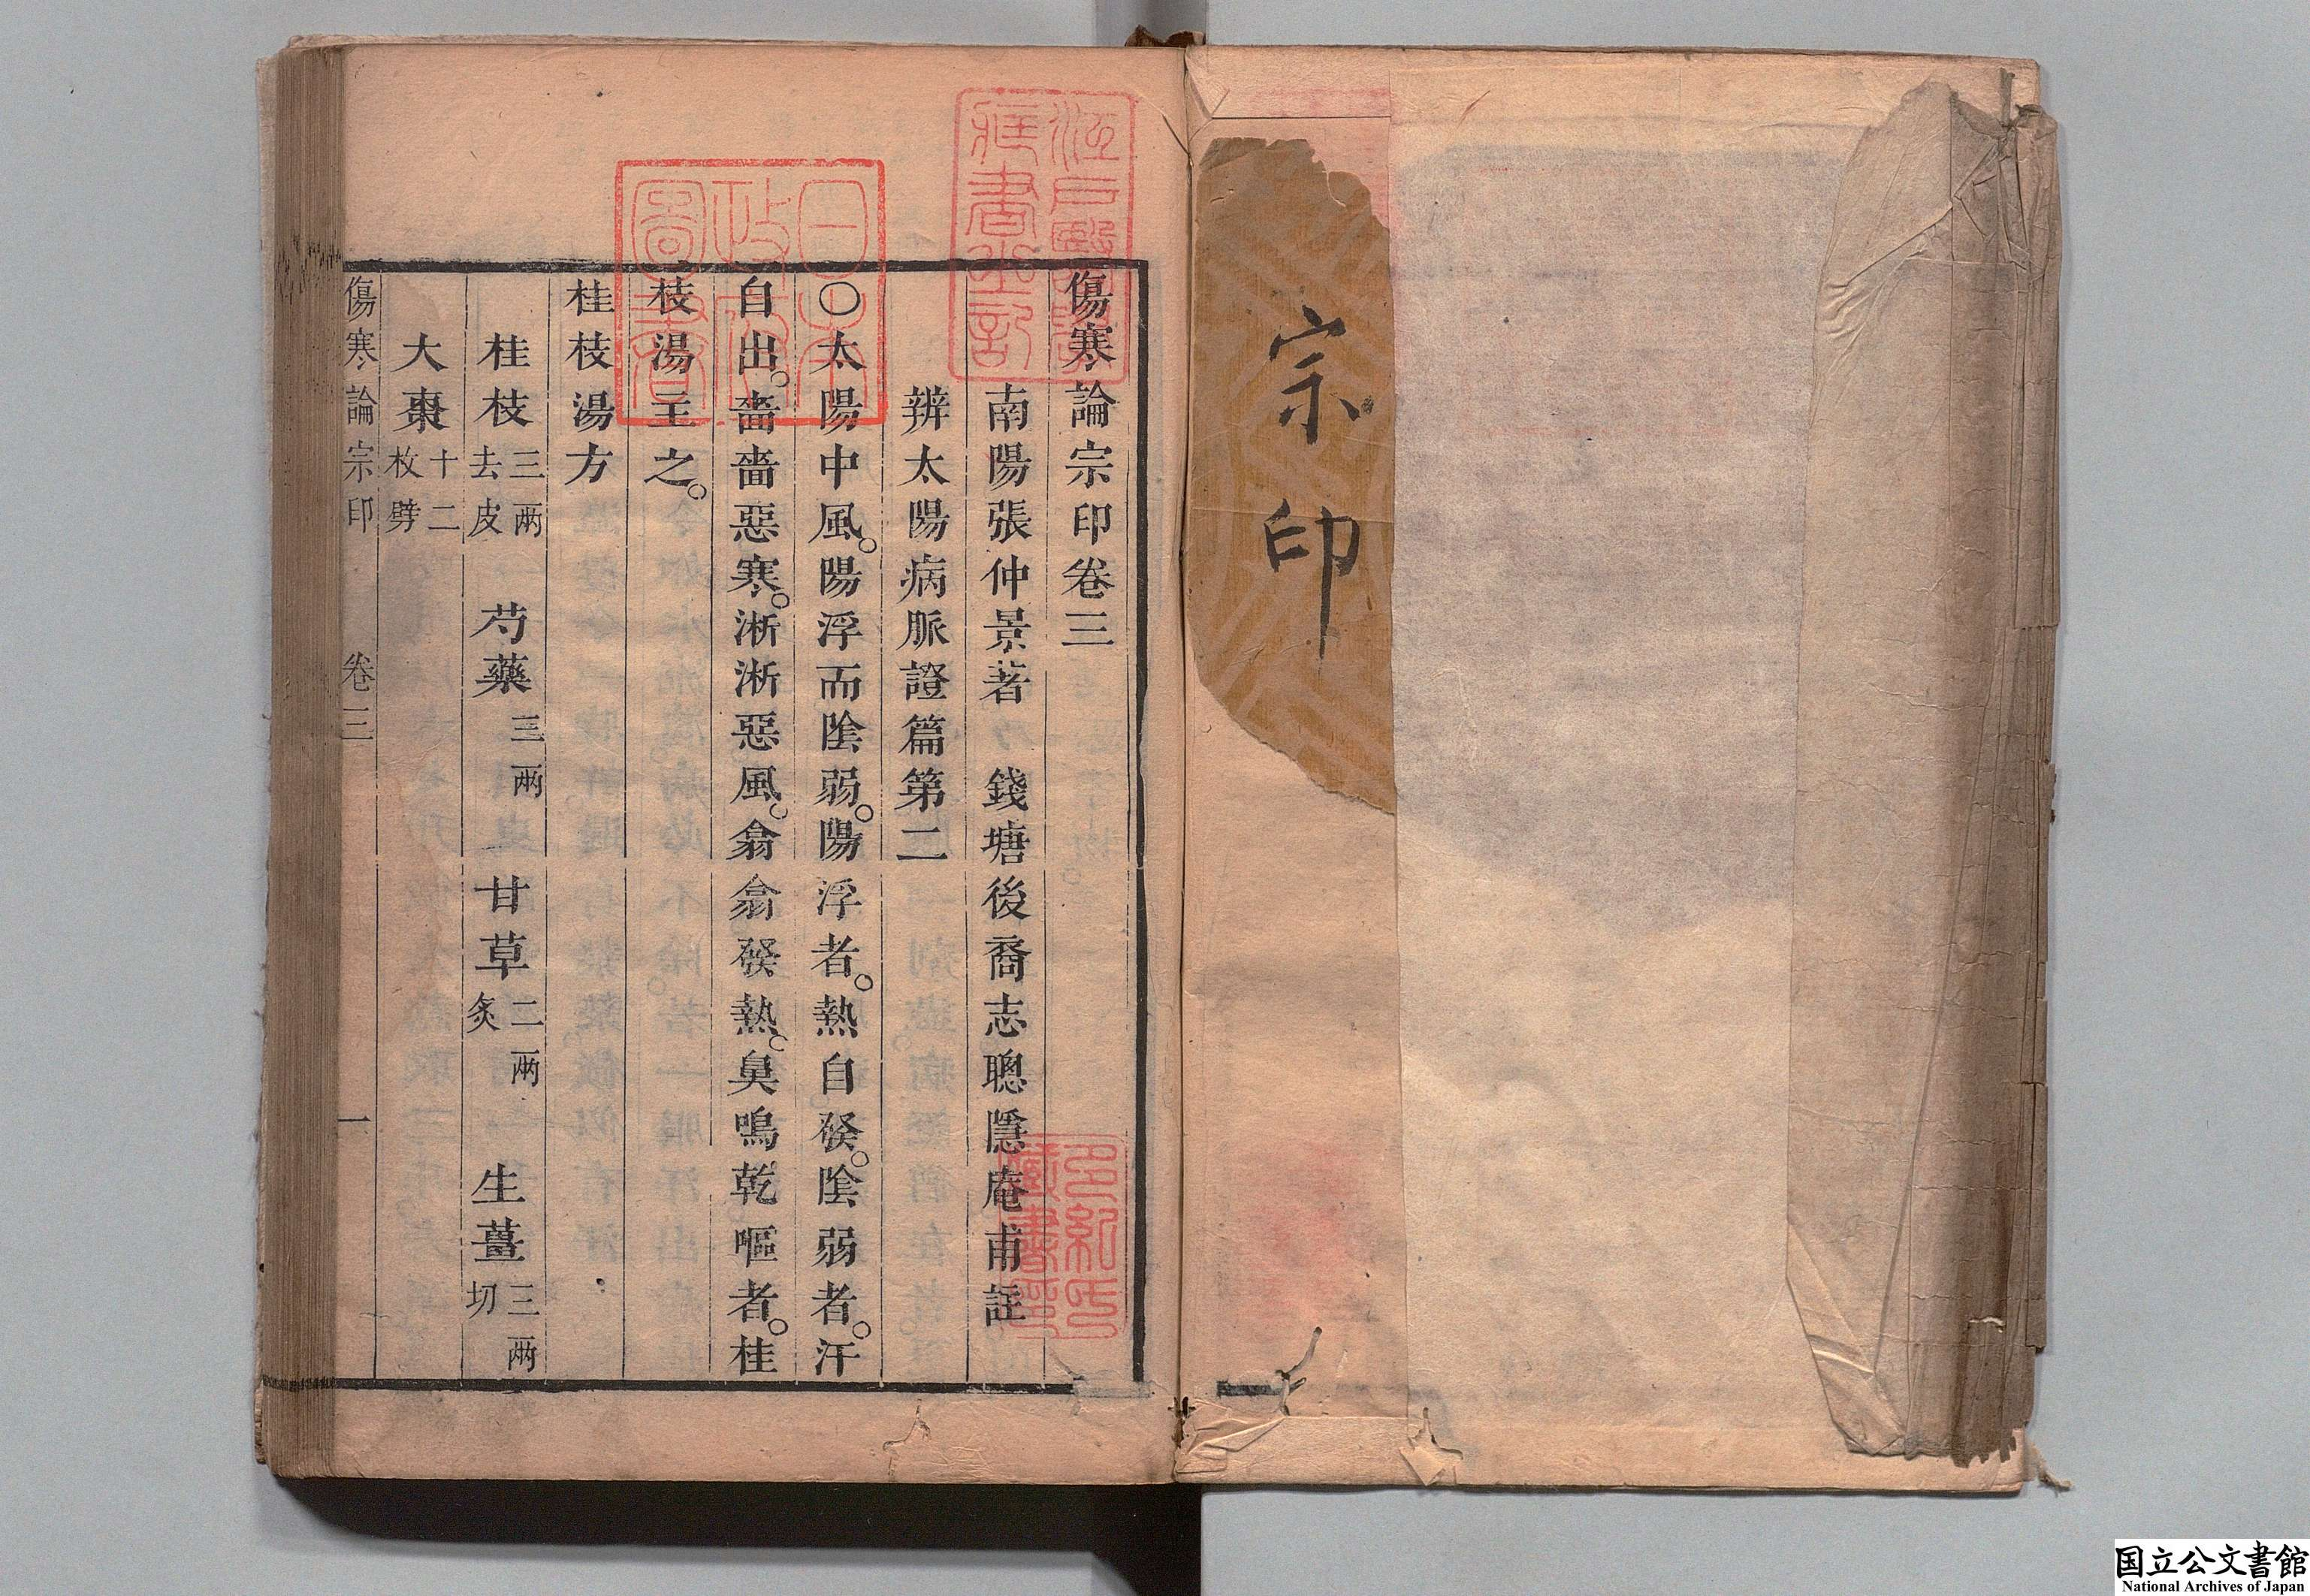 宗印
傷寒論宗印卷三
南陽張仲景著　錢塘後裔志聰隱庵甫註
辨太陽病脈證篇第二
○太陽中風。陽浮而陰弱。陽浮者。熱自發。陰弱者。汗
自出。嗇嗇惡寒。淅淅惡風。翕翕發熱。鼻鳴乾嘔者。桂
枝湯主之。
桂枝湯方
桂枝三兩去皮　芍藥三兩　甘草二兩炙　生薑三兩切
大棗十二枚劈
傷寒論宗印　卷三　一
日本政府圖書
多紀氏藏書印
国立公文書館
National Archives of Japan